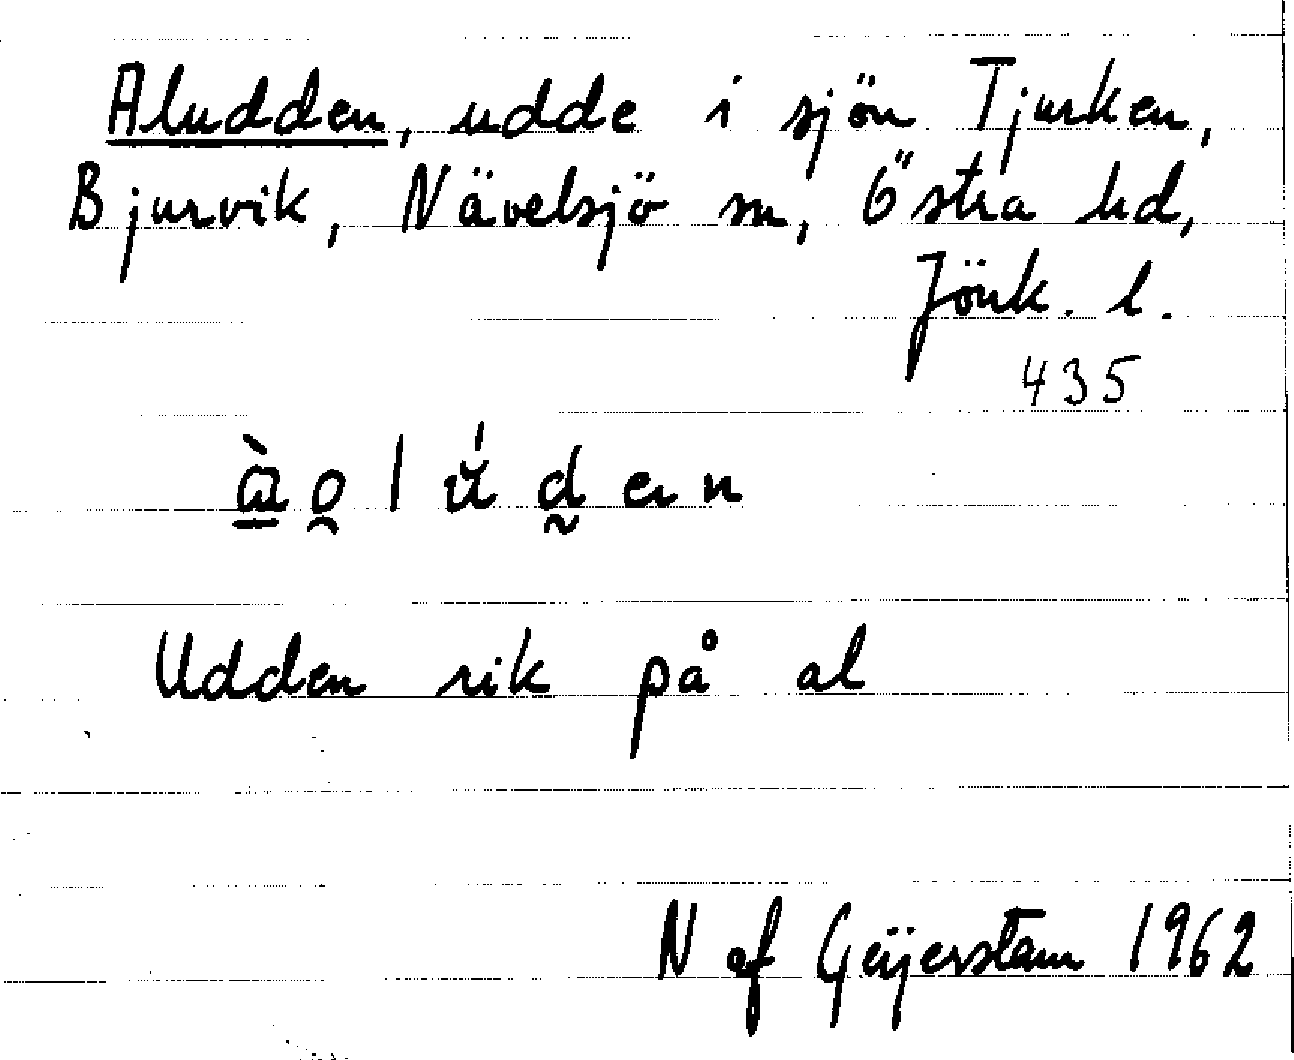 Aludden, udde i sjön Tjurken,
Bjurvik, Nävelsjö sn, Östra hd,
Jönk. l.
435
Udden rik på al
N af Geijerstam 1962